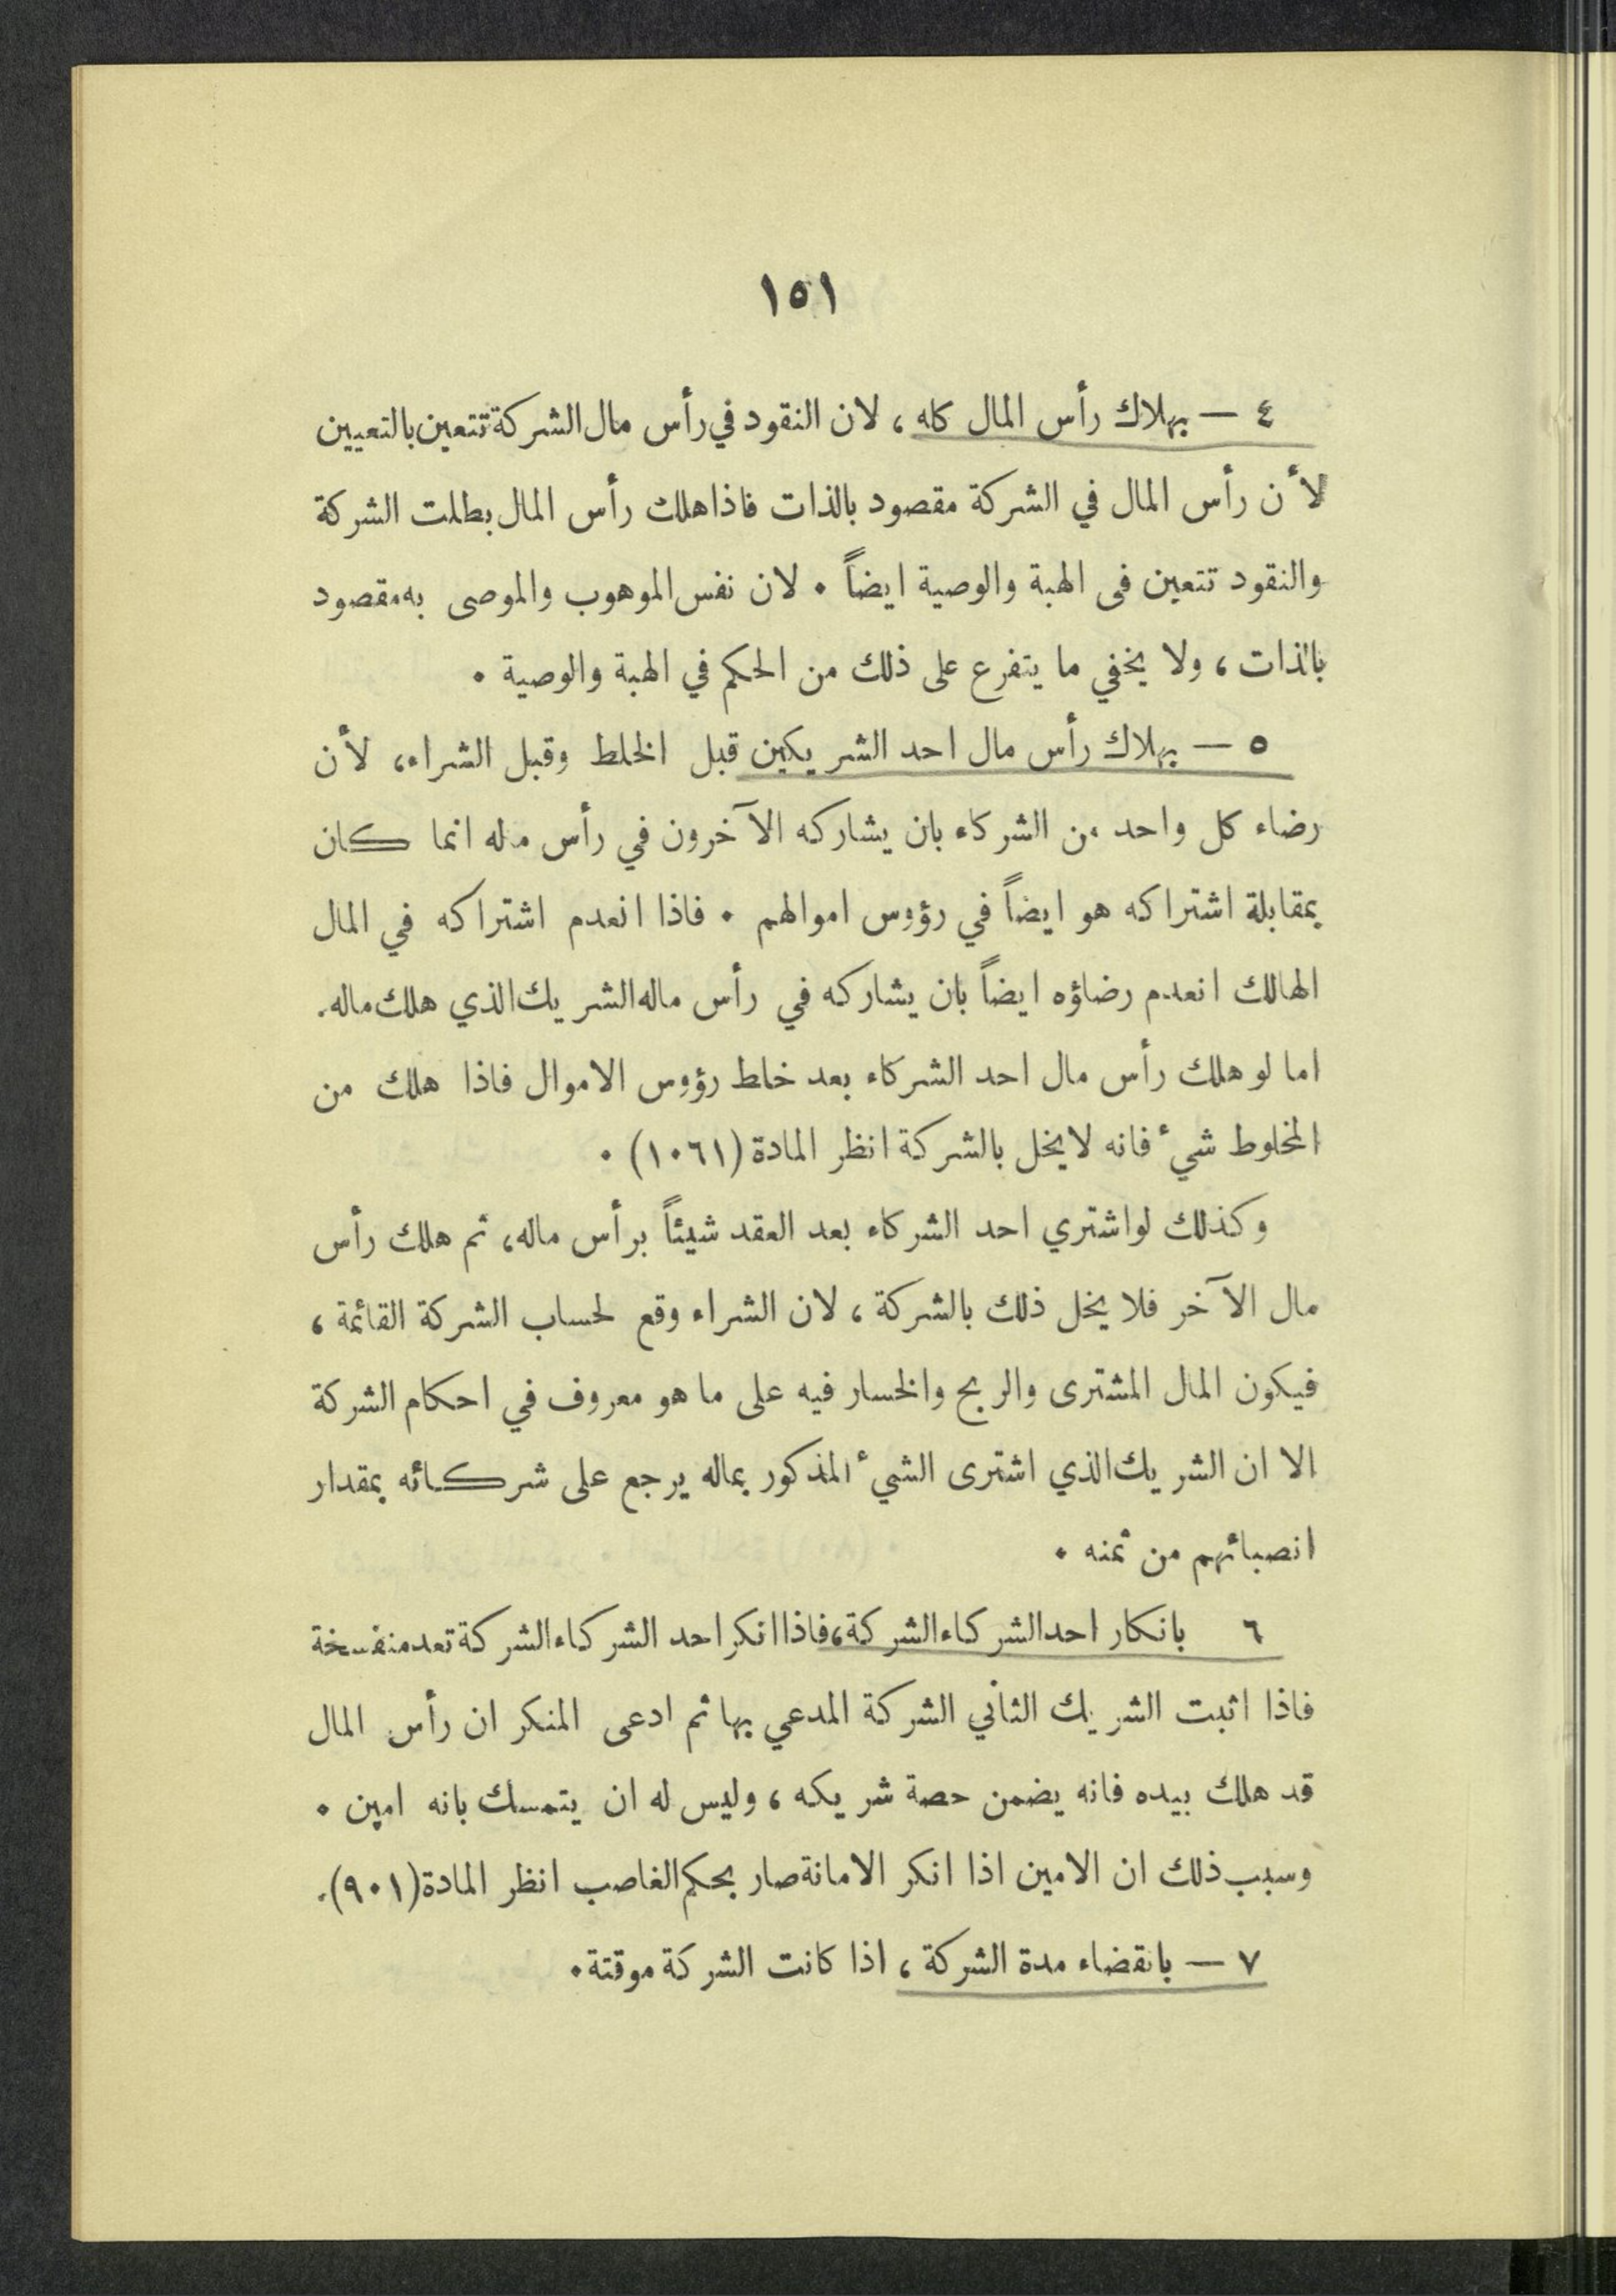 ١٥١
٤ — بهلاك رأس المال كله، لان النقود في رأس مال الشركة تتعين بالتعيين
لأن رأس المال في الشركة مقصود بالذات فاذا هلك رأس المال بطلت الشركة
والنقود تتعين فى الهبة والوصية ايضاً . لان نفس الموهوب والموصى به مقصود
بالذات، ولا يخفي ما يتفرع على ذلك من الحكم في الهبة والوصية .
٥ — بهلاك رأس مال احد الشريكين قبل الخلط وقبل الشراء، لأن
رضاء كل واحد من الشركاء بان يشاركه الآخرون في رأس ماله انما كان
بمقابلة اشتراكه هو ايضاً في رؤوس اموالهم . فاذا انعدم اشتراكه في المال
الهالك انعدم رضاؤه ايضاً بان يشاركه في رأس ماله الشريك الذي هلك ماله.
اما لو هلك رأس مال احد الشركاء بعد خلط رؤوس الاموال فاذا هلك من
المخلوط شيء فانه لا يخل بالشركة انظر المادة (١٠٦١) .
وكذلك لو اشتري احد الشركاء بعد العقد شيئاً برأس ماله، ثم هلك رأس
مال الآخر فلا يخل ذلك بالشركة، لان الشراء وقع لحساب الشركة القائمة،
فيكون المال المشترى والربح والخسار فيه على ما هو معروف في احكام الشركة
الا ان الشريك الذي اشترى الشيء المذكور بماله يرجع على شركائه بمقدار
انصبائهم من ثمنه .
٦ بانكار احد الشركاء الشركة، فاذا انكر احد الشركاء الشركة تعد منفسخة
فاذا اثبت الشريك الثاني الشركة المدعي بها ثم ادعى المنكر ان رأس المال
قد هلك بيده فانه يضمن حصة شريكه، وليس له ان يتمسك بانه امين .
وسبب ذلك ان الامين اذا انكر الامانة صار بحكم الغاصب انظر المادة (٩٠١).
٧ — بانقضاء مدة الشركة، اذا كانت الشركة موقتة.